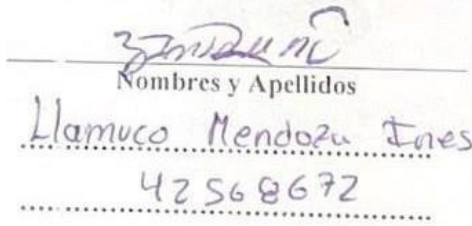 Nombres y Apellidos
Llamuco Mendoza Ines
42568672